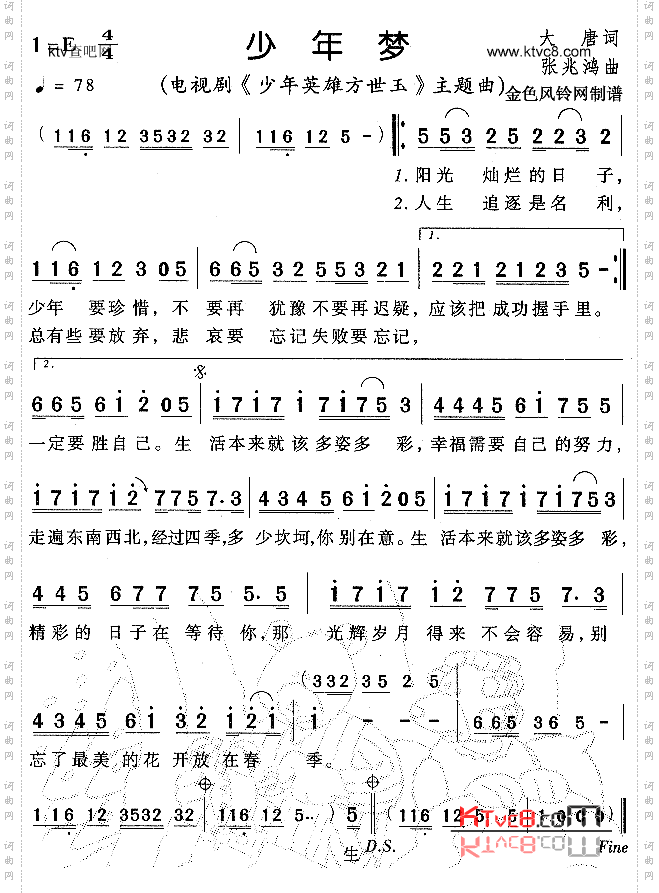 1=E 4/4
ktv查吧网
少 年 梦
大 唐词
www.ktvc8.com
张兆鸿曲
♩= 78
(电视剧《少年英雄方世玉》主题曲)
金色风铃网制谱
( 116 12 3532 32 116 12 5 - ) 553 25 223 2
1.阳光 灿烂的日 子,
2.人生 追逐是名 利,
1.
116 123 05 665 32 5535 321 221 21235 -
少年 要珍惜, 不 要再 犹豫不要再迟疑, 应该把成功握手里。
总有些要放弃, 悲 哀要 忘记失败要忘记,
2.
665 61 205 1717 17 1175 3 4445 61755
一定要胜自己。生 活本来就该多姿多 彩,幸福需要自己的努力,
171712 7757.3 4345 61205 1717 171753
走遍东南西北,经过四季,多 少坎坷,你别在意。生 活本来就该多姿多 彩,
445 677 75 5.5 1717 12 775 7.3
精彩的 日子在 等待 你,那 光辉岁月 得来 不会容 易,别
(332 35 2 5
4345 61 32 121 1 - - - 665 36 5 -
忘了最美 的花 开放 在春 季。
116 12 3532 32 116 12 5.. ) 5
生
D.S.
(116 12 5
Ktvc8.com
Fine
词曲网